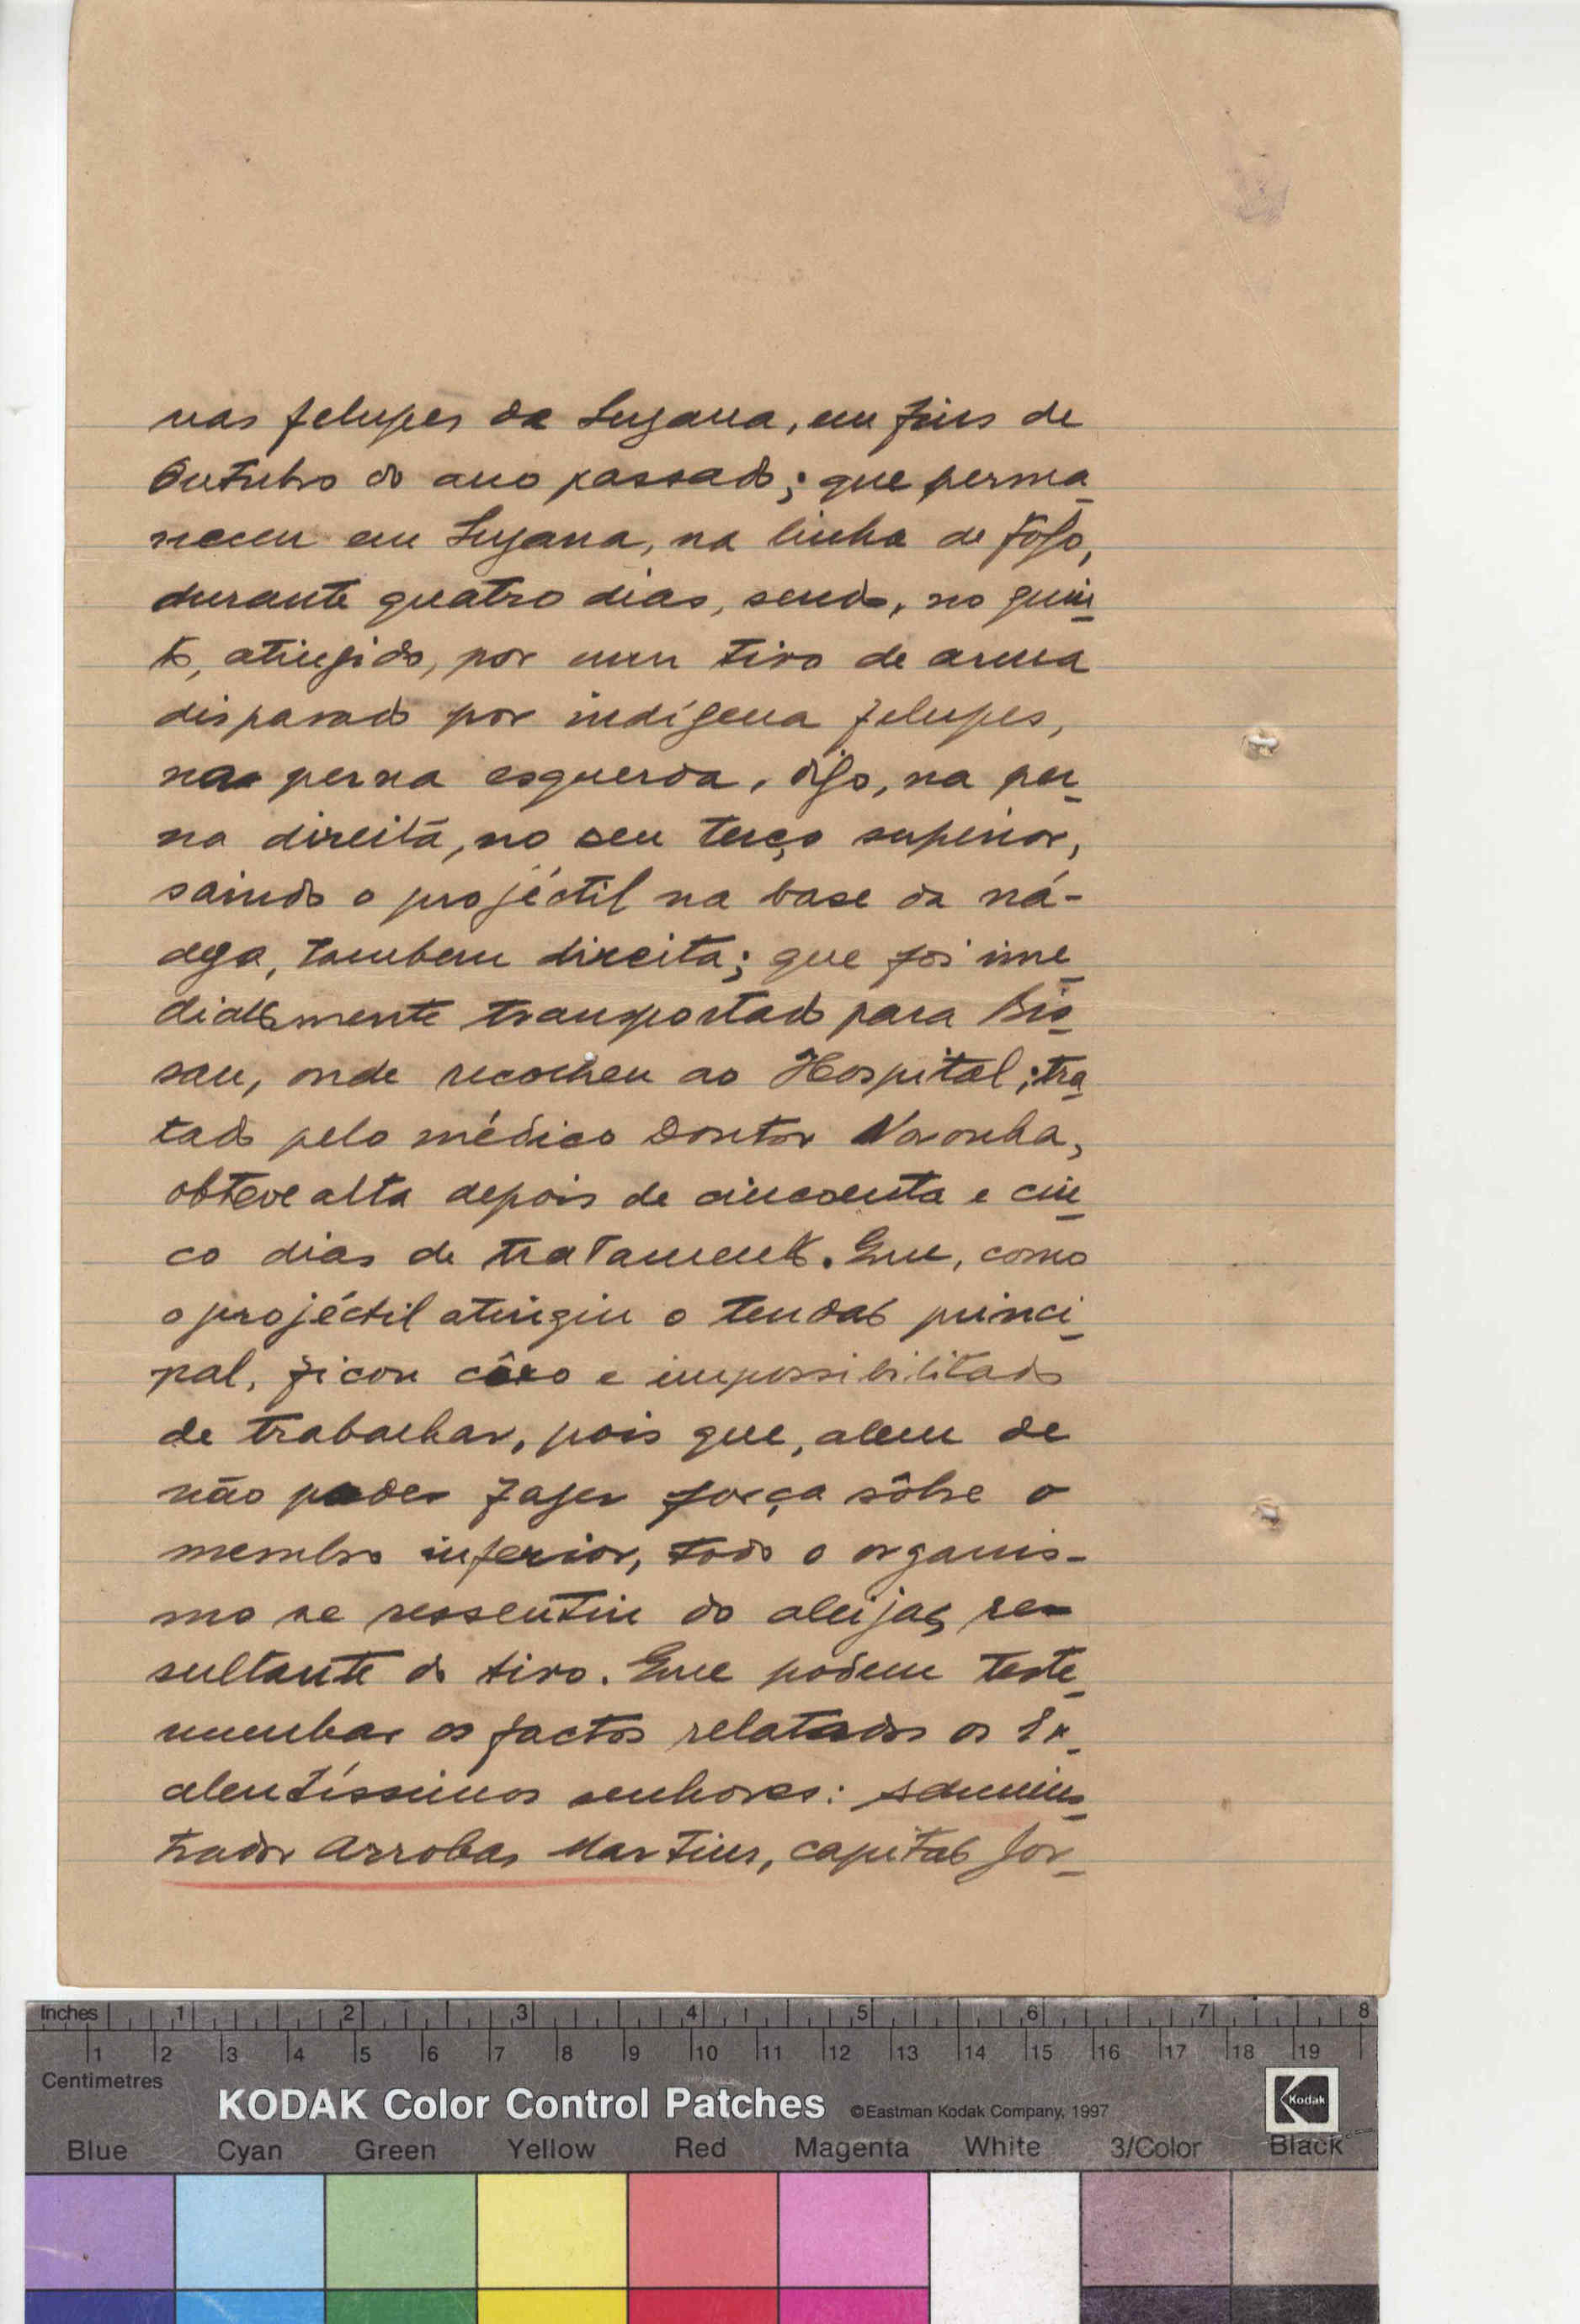 nas felupes de Sugana, em fins de
Outubro do ano passado; que perma
neceu em Sugana, na linha de fôgo,
durante quatro dias, sendo, no quin
to, atingido, por um tiro de arma
disparado por indígena felupes,
na perna esquerda, digo, na per
na direita, no seu terço superior,
saindo o projéctil na base da ná-
dega, tambem direita; que foi ime
diatamente transportado para Bis
sau, onde recolheu ao Hospital; tra
tado pelo médico Doutor Noronha,
obteve alta depois de cincoenta e cin
co dias de tratamento. Que, como
o projéctil atingiu o tendão princi
pal, ficou côxo e impossibilitado
de trabalhar, pois que, alem de
não poder fazer força sôbre o
membro inferior, todo o organis-
mo se ressentiu do aleijão re-
sultante do tiro. Que podem teste
munhar os factos relatados os Ex.
celentíssimos senhores: Adminis
trador Arrobas Martins, capitão Jor-
Inches 1 2 3 4 5 6 7 8
1 2 3 4 5 6 7 8 9 10 11 12 13 14 15 16 17 18 19
Centimetres
KODAK Color Control Patches ©Eastman Kodak Company, 1997 Kodak
Blue Cyan Green Yellow Red Magenta White 3/Color Black